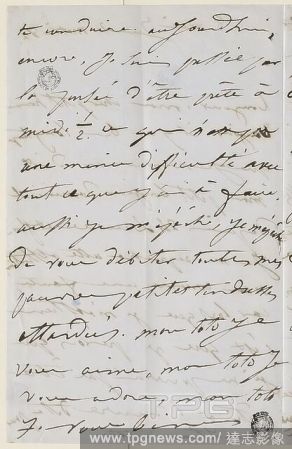 te conduire aujourd'hui,
encore. Je suis pressée par
la pensée d'être prête à
midi ½ ce qui n'est pas
une mince difficulté avec
tout ce que j'ai à faire.
aussi je me je
de vous débiter toutes mes
pauvres petites tendresses
mon toto je
vous aime, mon toto je
vous adore, mon toto
Je vous
TPG
www.tpgnews.com / 達志影像